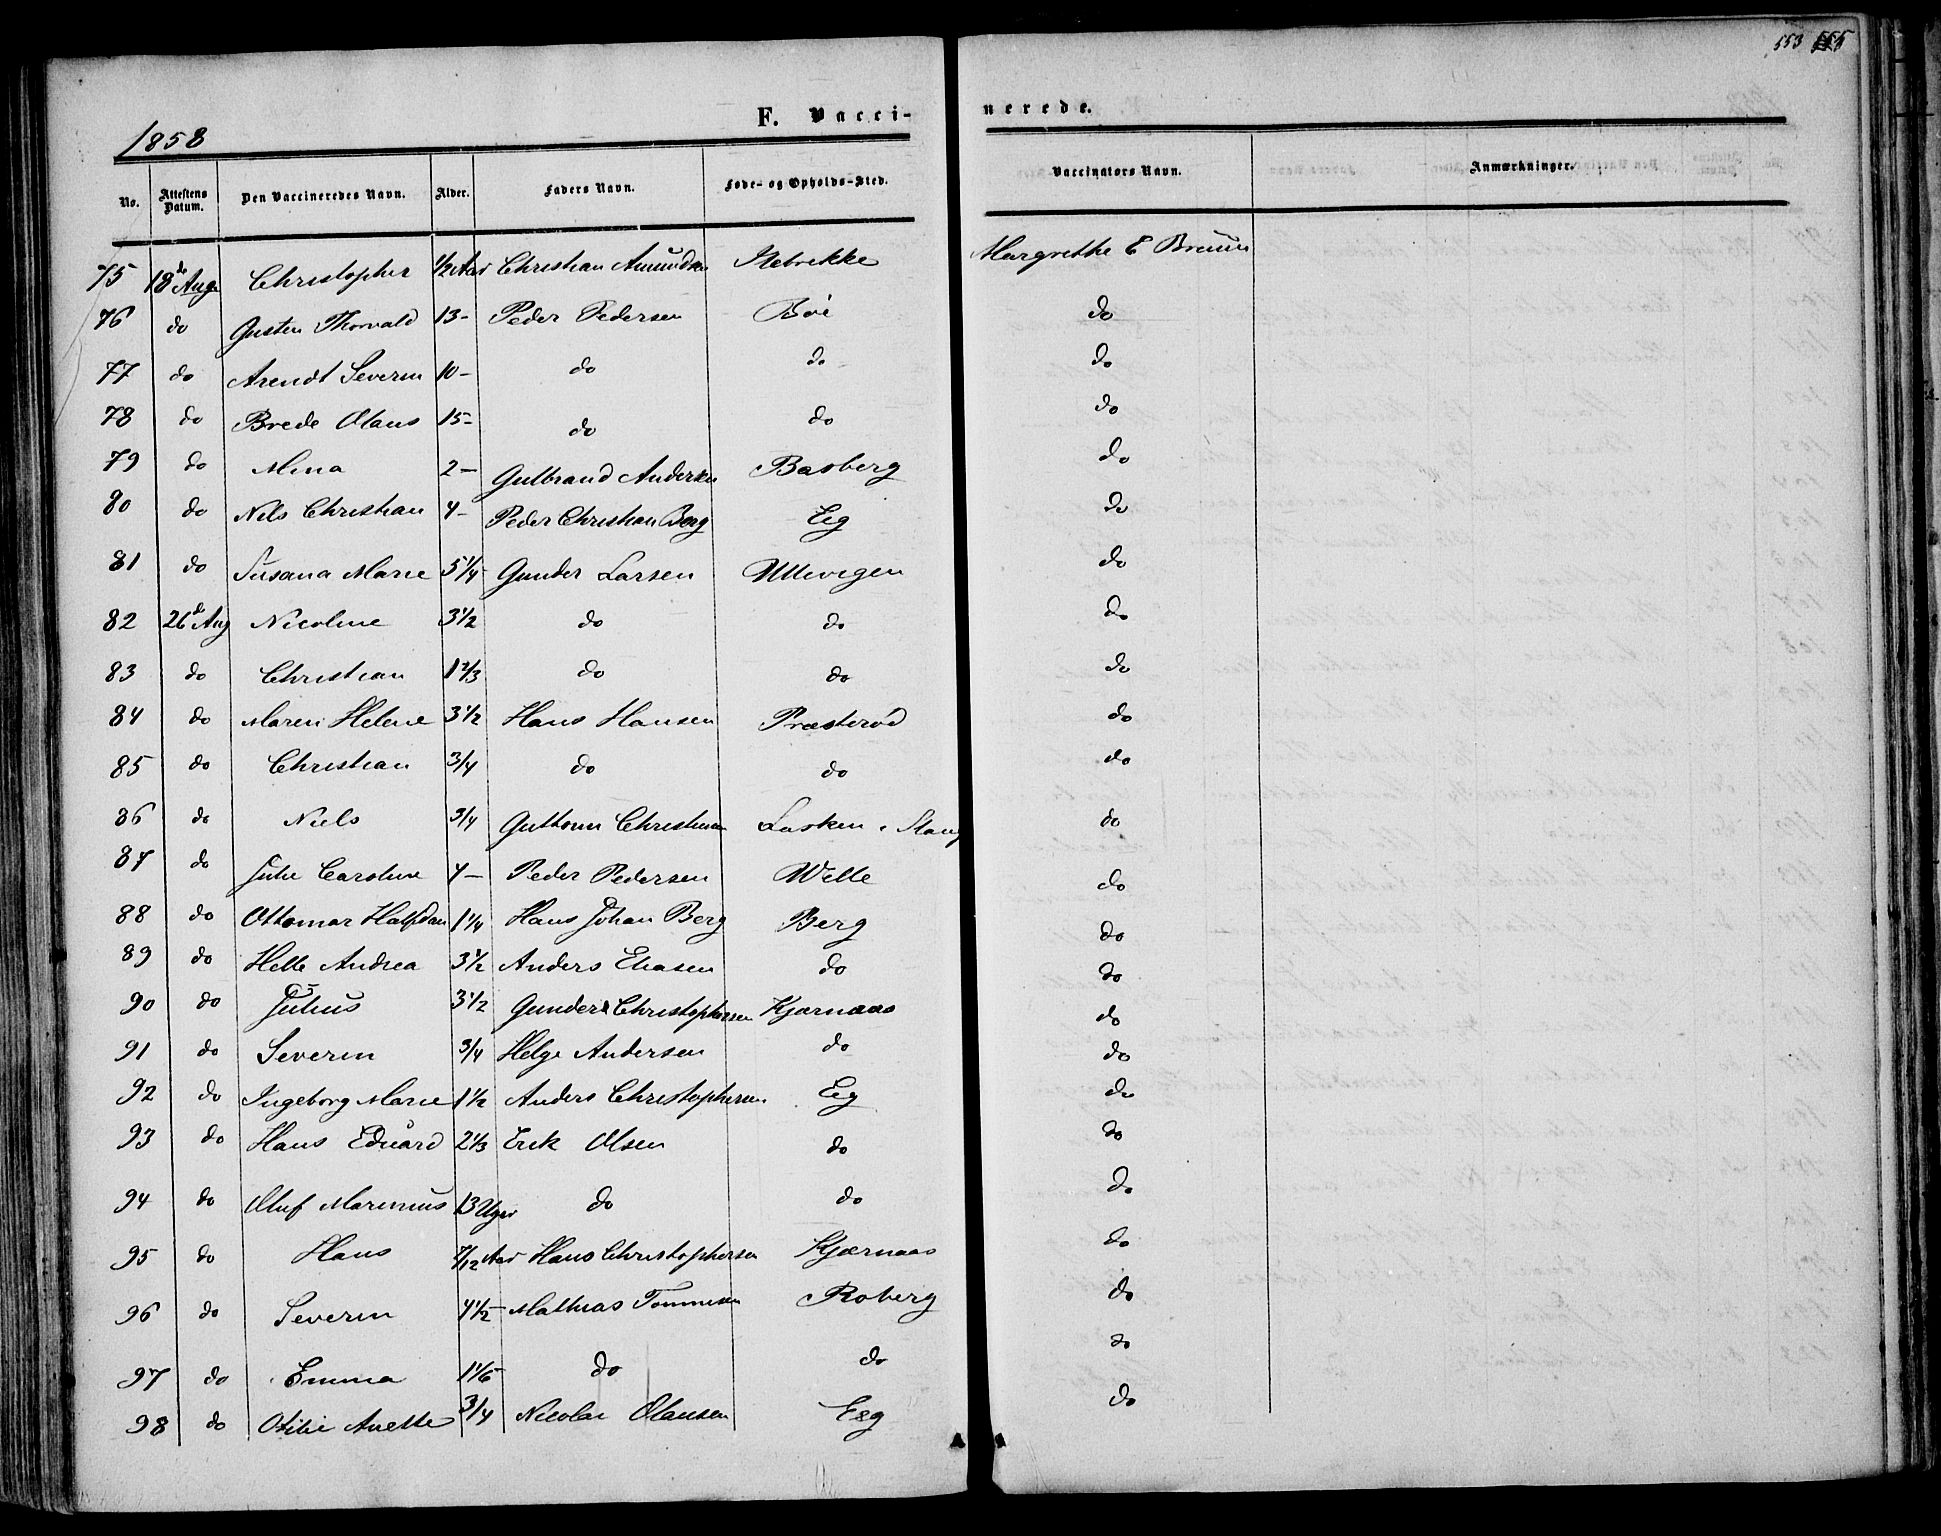 553 555
F. Vaccinerede.
1858
No. Attestens Datum. Den Vaccineredes Navn. Alder. Faders Navn. Føde- og Opholds-Sted. Vaccinators Navn. Anmærkninger.
75 18de Aug Christopher 1/2 Aar Christian Amundsen Margrethe E Bruun
76 do Gusten Thorvald 13- Peder Pedersen Bøe do
77 do Arendt Severin 10- do do do
78 do Brede Olaus 15- do do do
79 do Mina 2- Gulbrand Andersen Basberg do
80 do Nils Christian 4- Peder Christian Berg Eg do
81 do Susana Marie 5 1/4 Gunder Larsen Ullevigen do
82 26de Aug Nicoline 3 1/2 do do do
83 do Christian 1 2/3 do do do
84 do Maren Helene 3 1/2 Hans Hansen Præsterød do
85 do Christian 3/4 do do do
86 do Niels 3/4 Guttorm Christensen Lasken i Slang do
87 do Julie Caroline 4- Peder Pedersen Welle do
88 do Ottomar Halfdan 1 1/4 Hans Johan Berg Berg do
89 do Helle Andrea 3 1/2 Anders Eliasen do do
90 do Julius 3 1/2 Gunder Christophersen Kjærnaas do
91 do Severin 3/4 Helge Andersen do do
92 do Ingeborg Marie 1 1/2 Anders Christophersen Eig do
93 do Hans Eduard 2 1/3 Erik Olsen do do
94 do Oluf Marinius 13 Uger do do do
95 do Hans 7/12 Aar Hans Christophersen Kjærnaas do
96 do Severin 4 1/2- Mathias Tommesen Roberg do
97 do Emma 1 1/6 do do do
98 do Otilie Anette 3/4 Nicolai Olausen Eeg do